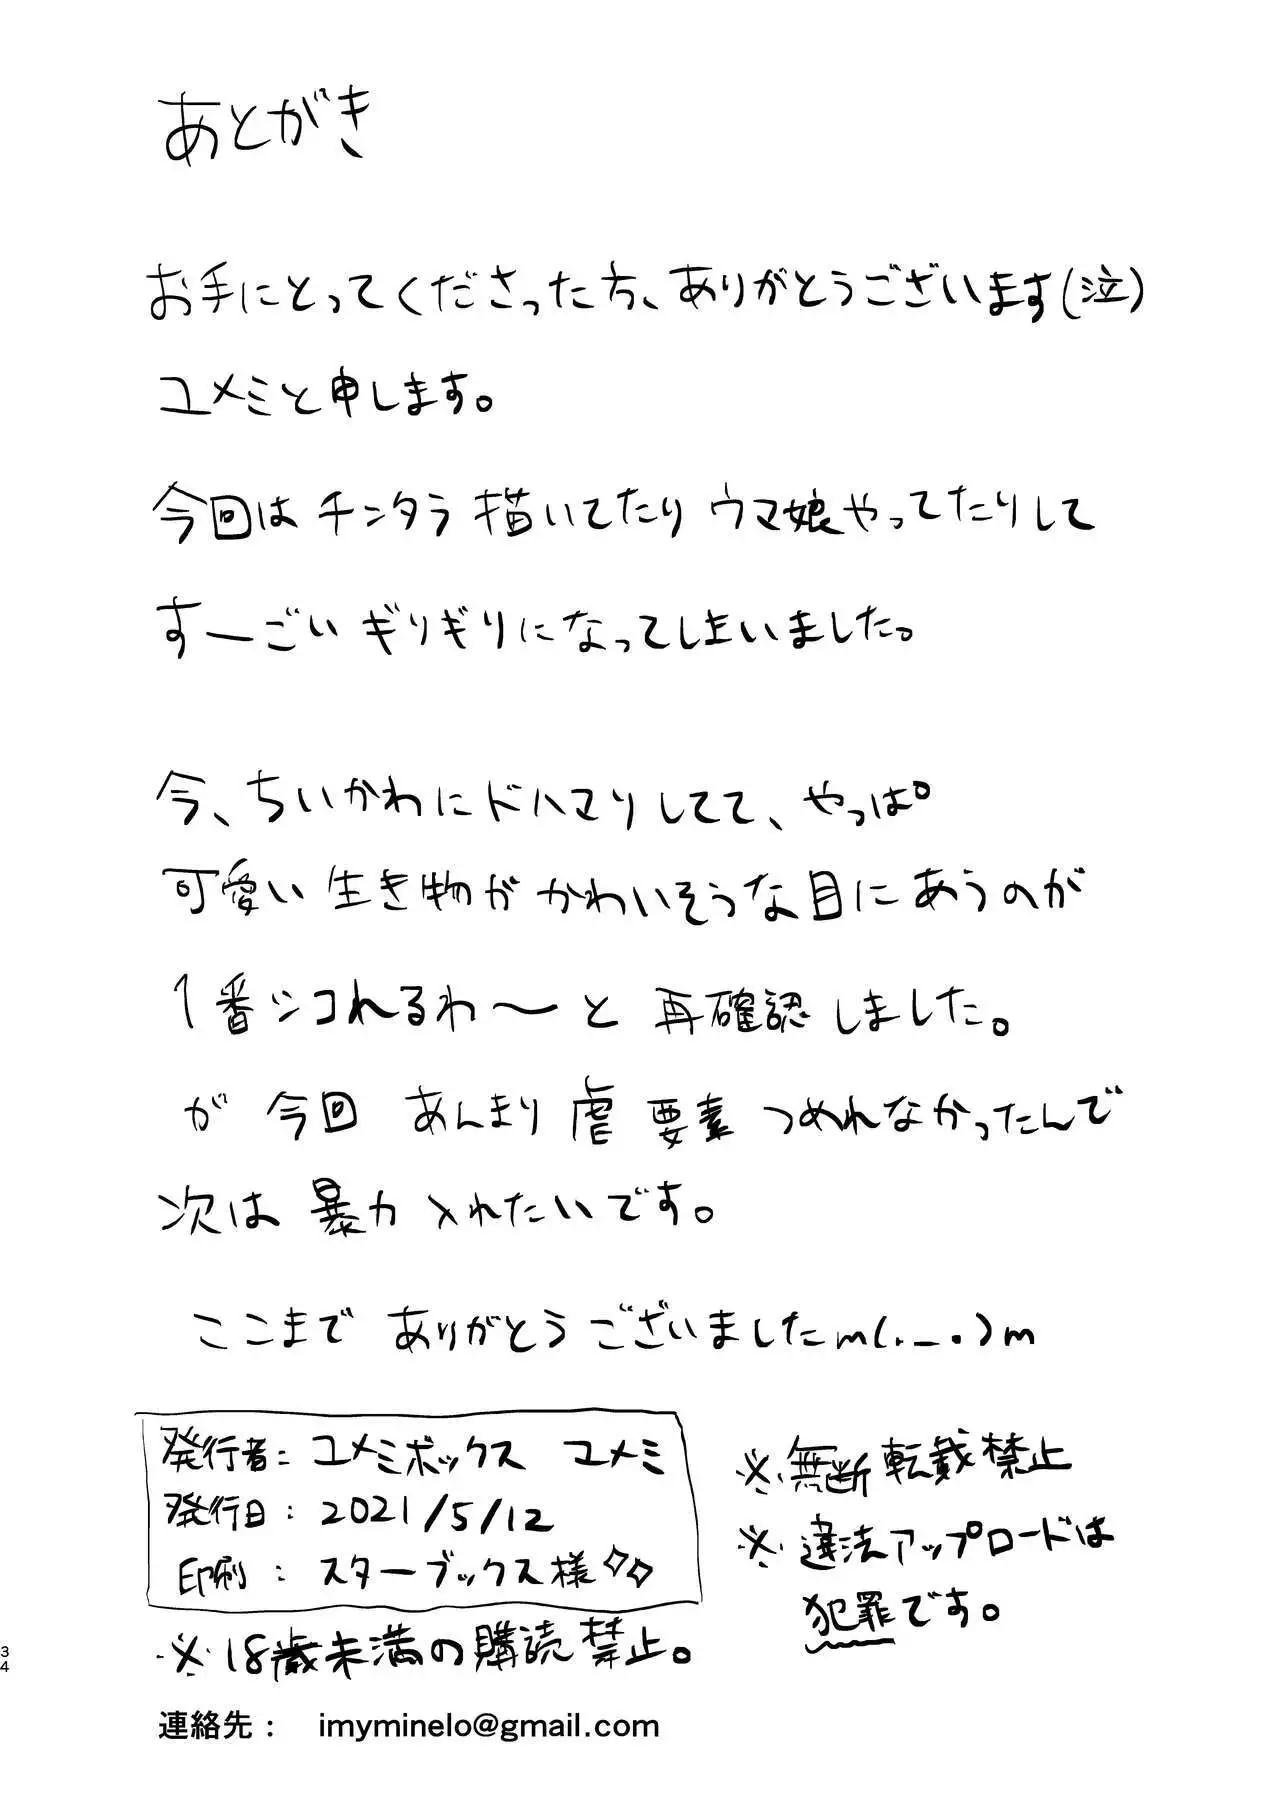 あとがき
お手にとってくださった方、ありがとうございます(泣)
ユメミと申します。
今回は チンタラ 描いてたり ウマ娘やってたりして
すーごい ギリギリになってしまいました。
今、ちいかわにドハマりしてて、やっぱ
可愛い 生き物が かわいそうな目にあうのが
1番シコれるわ〜と 再確認しました。
が 今回 あんまり 虐 要素 つめれなかったんで
次は 暴力 入れたいです。
ここまで ありがとうございましたm(._.)m
発行者: ユメミボックス ユメミ
発行日: 2021/5/12
印刷 : スターブックス様
※18歳未満の購読禁止。
※無断転載禁止
※違法アップロードは
犯罪です。
連絡先： imyminelo@gmail.com
34